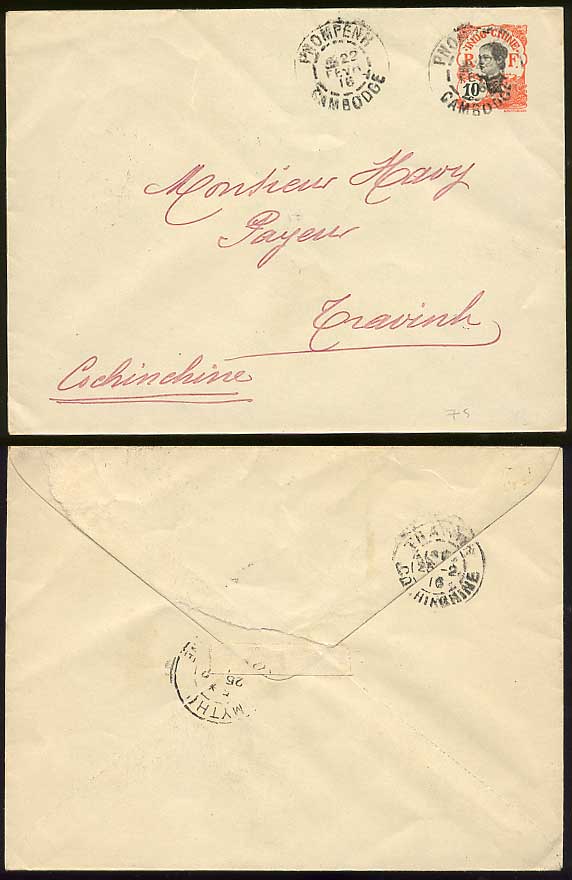 PNOMPENH
22
FEVR
16
CAMBODGE
PNOM
CAMBODGE
INDO-CHINE
R F
10
Monsieur Havy
Payeur
Travinh
Cochinchine
75
TRAVINH
25 -2
16
COCHINCHINE
MYTHO
25